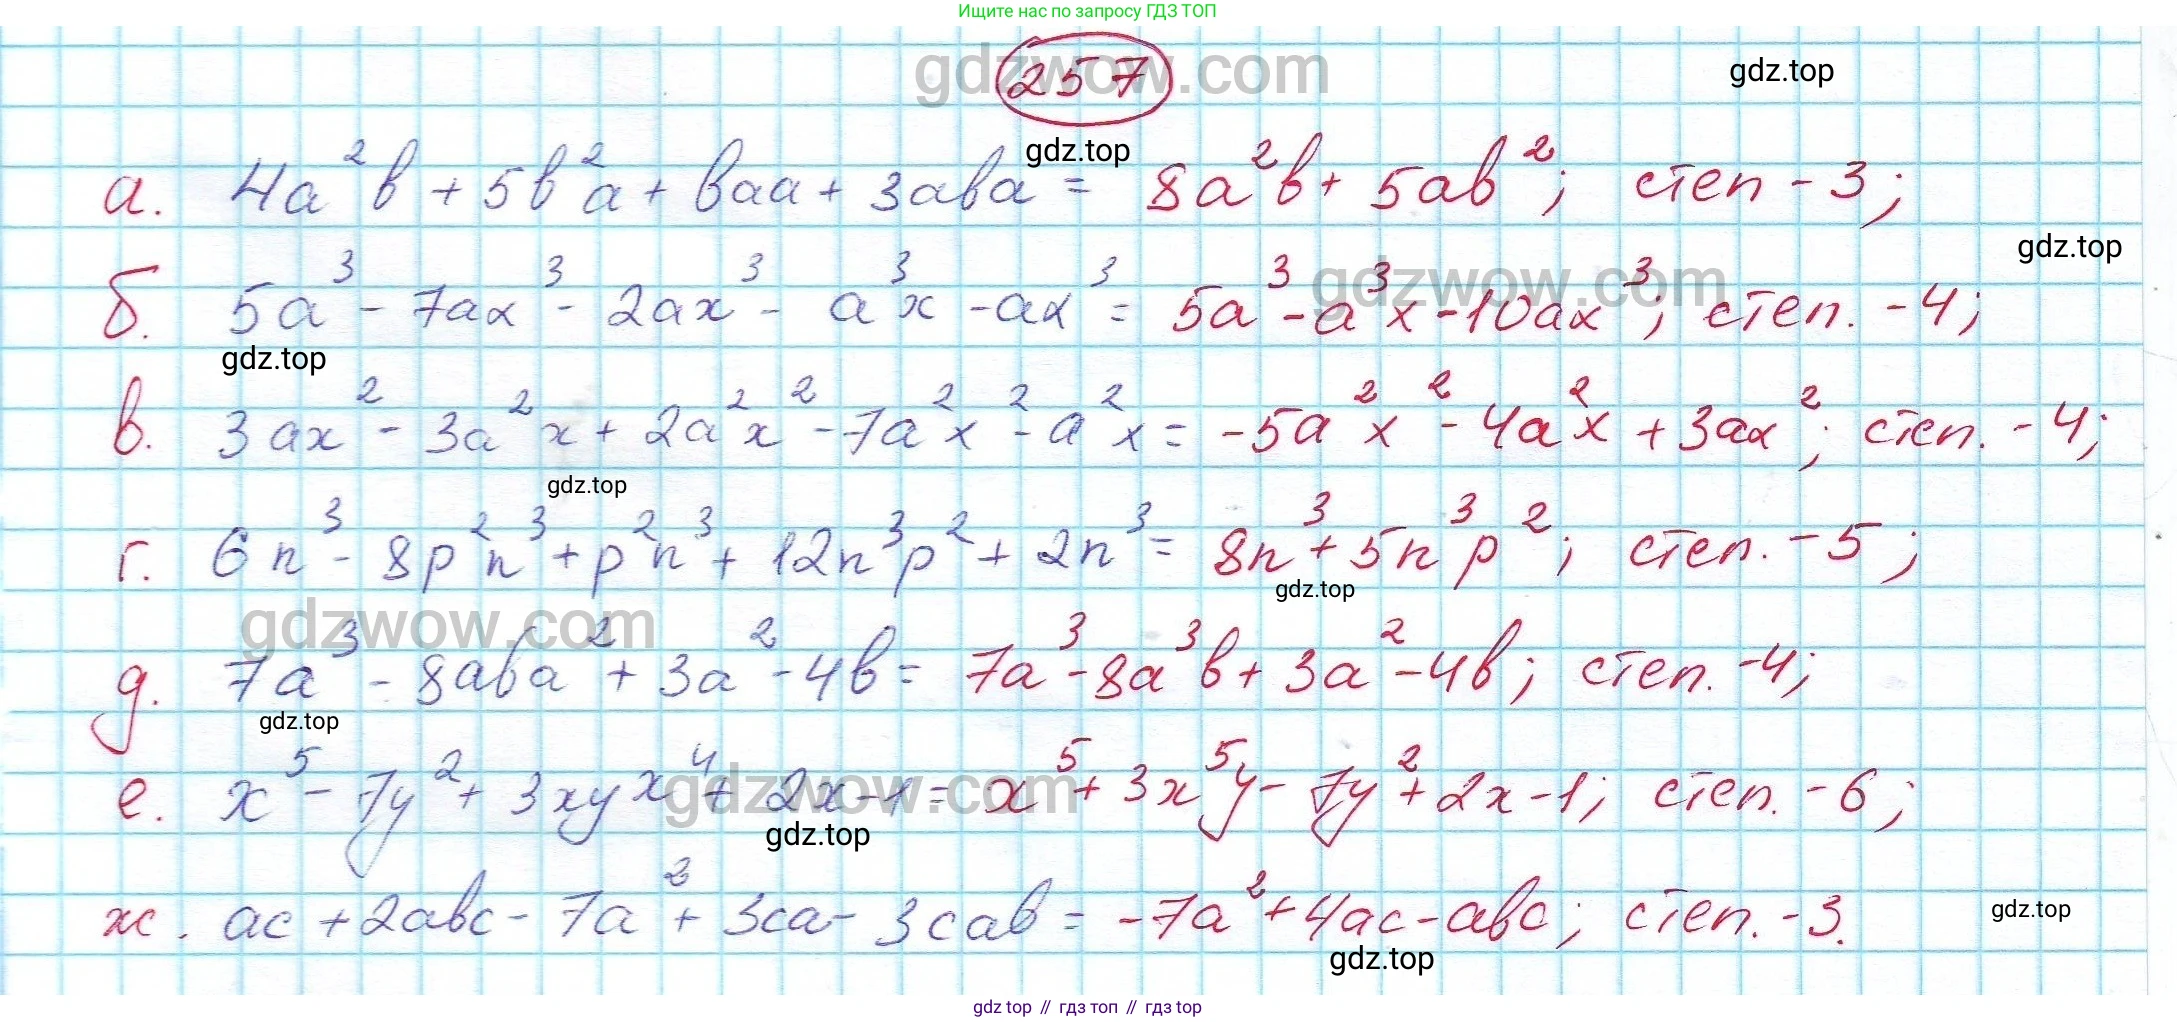 Ищите нас по запросу ГДЗ ТОП
gdzwow.com
257
gdz.top
gdz.top
а. 4a²b + 5b²a + baa + 3aba = 8a²b + 5ab²; степ - 3;
gdz.top
gdzwow.com
б. 5a³ - 7ax³ - 2ax³ - a³x - ax³ = 5a³ - a³x - 10ax³; степ. - 4;
gdz.top
в. 3ax² - 3a²x + 2a²x² - 7a²x² - a²x = -5a²x² - 4a²x + 3ax²; степ. - 4;
gdz.top
г. 6n³ - 8p²n³ + p²n³ + 12n³p² + 2n³ = 8n³ + 5n³p²; степ. - 5;
gdz.top
gdzwow.com
д. 7a³ - 8aba² + 3a² - 4b = 7a³ - 8a³b + 3a² - 4b; степ. - 4;
gdz.top
gdzwow.com
е. x⁵ - 7y² + 3xyx⁴ + 2x - 1 = x⁵ + 3x⁵y - 7y² + 2x - 1; степ. - 6;
gdz.top
ж. ac + 2abc - 7a² + 3ca - 3cab = -7a² + 4ac - abc; степ. - 3.
gdz.top
gdz.top
gdz top // гдз топ // гдз top